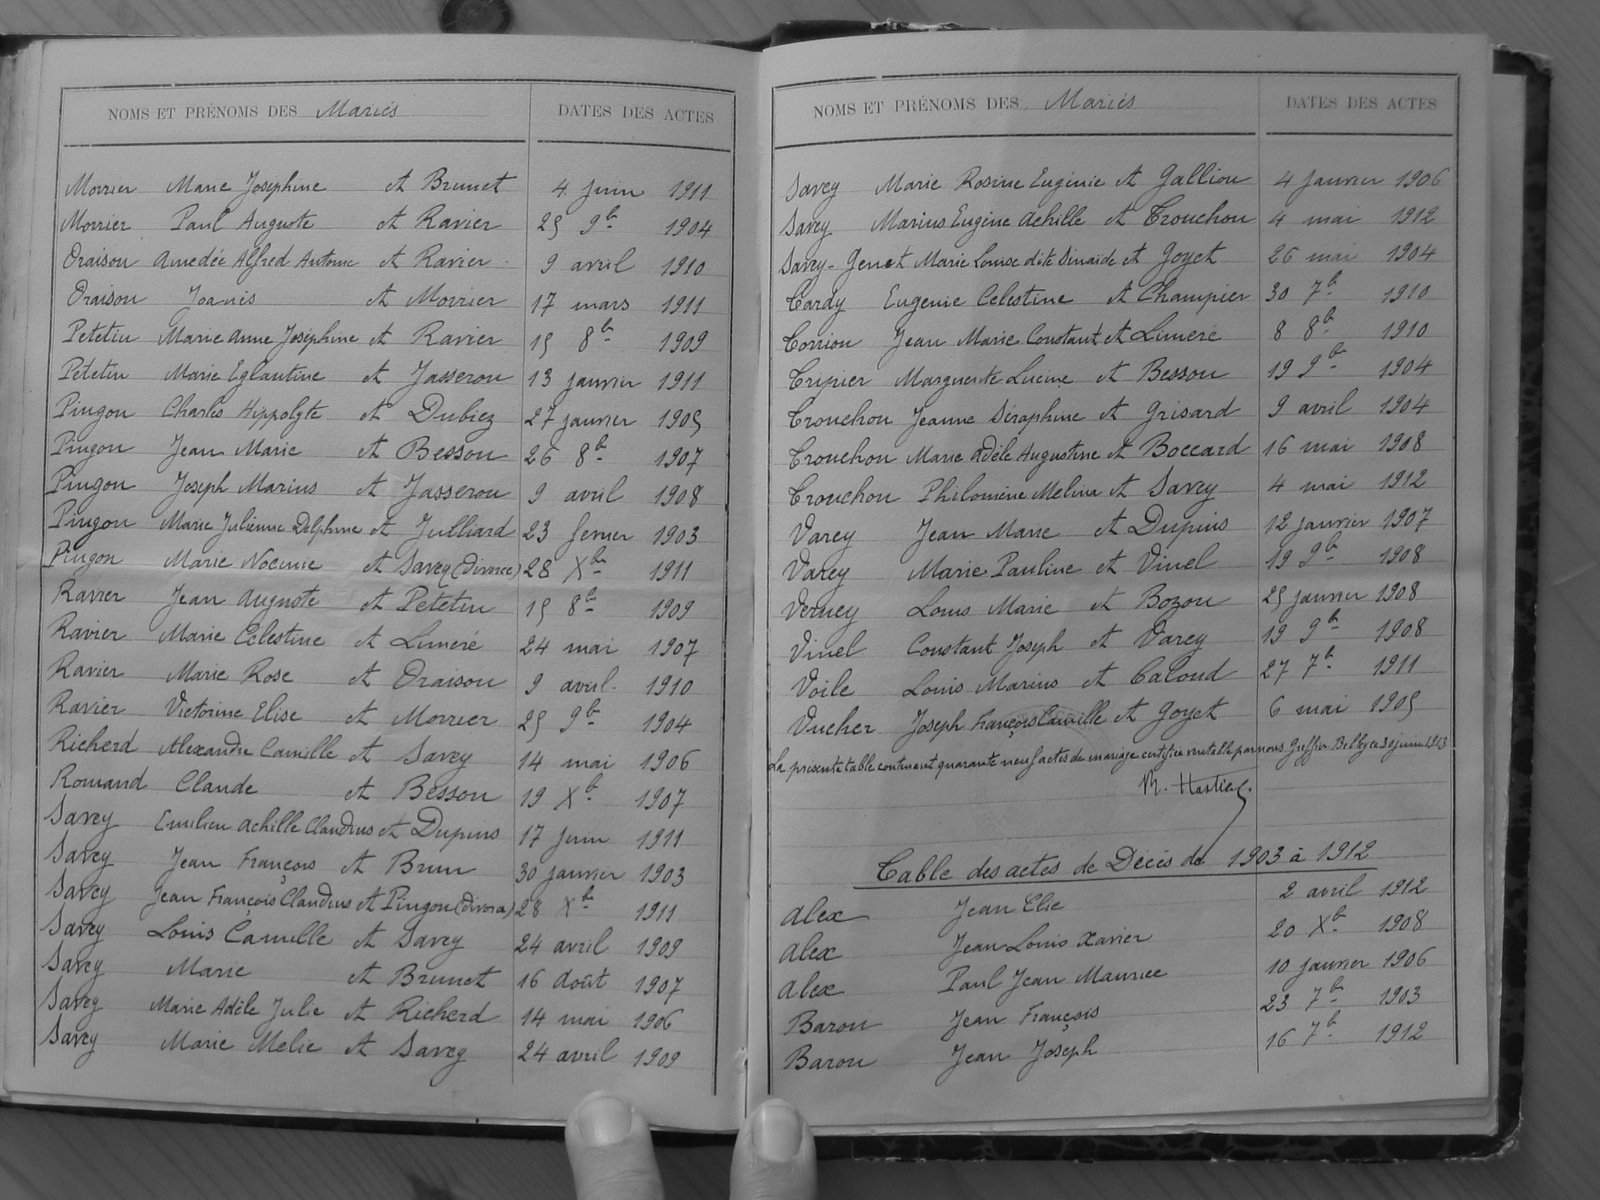 NOMS ET PRÉNOMS DES Mariés DATES DES ACTES
Morrier Marie Joséphine et Brunet 4 juin 1911
Morrier Paul Auguste et Ravier 25 9b 1904
Oraison Amedée Alfred Antoine et Ravier 9 avril 1910
Oraison Joanis et Morrier 17 mars 1911
Petetin Marie Anne Joséphine et Ravier 15 8b 1909
Petetin Marie Eglantine et Jasseron 13 janvier 1911
Pingon Charles Hippolyte et Dubiez 27 janvier 1905
Pingon Jean Marie et Besson 26 8b 1907
Pingon Joseph Marius et Jasseron 9 avril 1908
Pingon Marie Julienne Delphine et Julliard 23 fevrier 1903
Pingon Marie Noemie et Savey (Divorce) 28 Xb 1911
Ravier Jean Auguste et Petetin 15 8b 1909
Ravier Marie Célestine et Limeré 24 mai 1907
Ravier Marie Rose et Oraison 9 avril 1910
Ravier Victorine Elise et Morrier 25 9b 1904
Richerd Alexandre Camille et Savey 14 mai 1906
Romand Claude et Besson 19 Xb 1907
Savey Emilien Achille Claudius et Dupuis 17 juin 1911
Savey Jean François et Brun 30 janvier 1903
Savey Jean François Claudius et Pingon (divorce) 28 Xb 1911
Savey Louis Camille et Savey 24 avril 1909
Savey Marie et Brunet 16 août 1907
Savey Marie Adèle Julie et Richerd 14 mai 1906
Savey Marie Melie et Savey 24 avril 1909
NOMS ET PRÉNOMS DES Mariés DATES DES ACTES
Savey Marie Rosine Eugénie et Galliou 4 janvier 1906
Savey Marius Eugène Achille et Trouchon 4 mai 1912
Savey-Genet Marie Louise dite Sinaïde et Goyet 26 mai 1904
Tardy Eugenie Celestine et Champier 30 7b 1910
Torrion Jean Marie Constant et Limeré 8 8b 1910
Tripier Marguerite Lucine et Besson 19 9b 1904
Trouchon Jeanne Séraphine et Grisard 9 avril 1904
Trouchon Marie Adèle Augustine et Boccard 16 mai 1908
Trouchon Philomène Melina et Savey 4 mai 1912
Varey Jean Marie et Dupuis 12 janvier 1907
Varey Marie Pauline et Vinel 19 9b 1908
Verney Louis Marie et Bozon 25 janvier 1908
Vinel Constant Joseph et Varey 19 9b 1908
Voile Louis Marius et Caloud 27 7b 1911
Vucher Joseph François Camille et Goyet 6 mai 1905
La présente table contenant quarante neuf actes de mariage certifiée par nous Greffier Belley ce 30 juin 1913
Table des actes de Décès de 1903 à 1912
Alex Jean Elie 2 avril 1912
Alex Jean Louis Xavier 20 Xb 1908
Alex Paul Jean Maurice 10 janvier 1906
Baron Jean François 23 7b 1903
Baron Jean Joseph 16 7b 1912